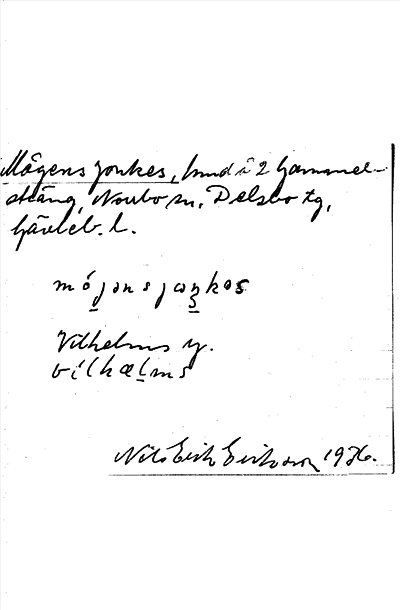 Mågens Jonkes, hmd i 2 Gammel-
sträng, Norrbo sn, Delsbo tg,
Gävleb. l.
mó̱jəns jωŋ̱kəs
Vilhelms y.
vílhæḻms
Nils Erik Eriksson 1936.